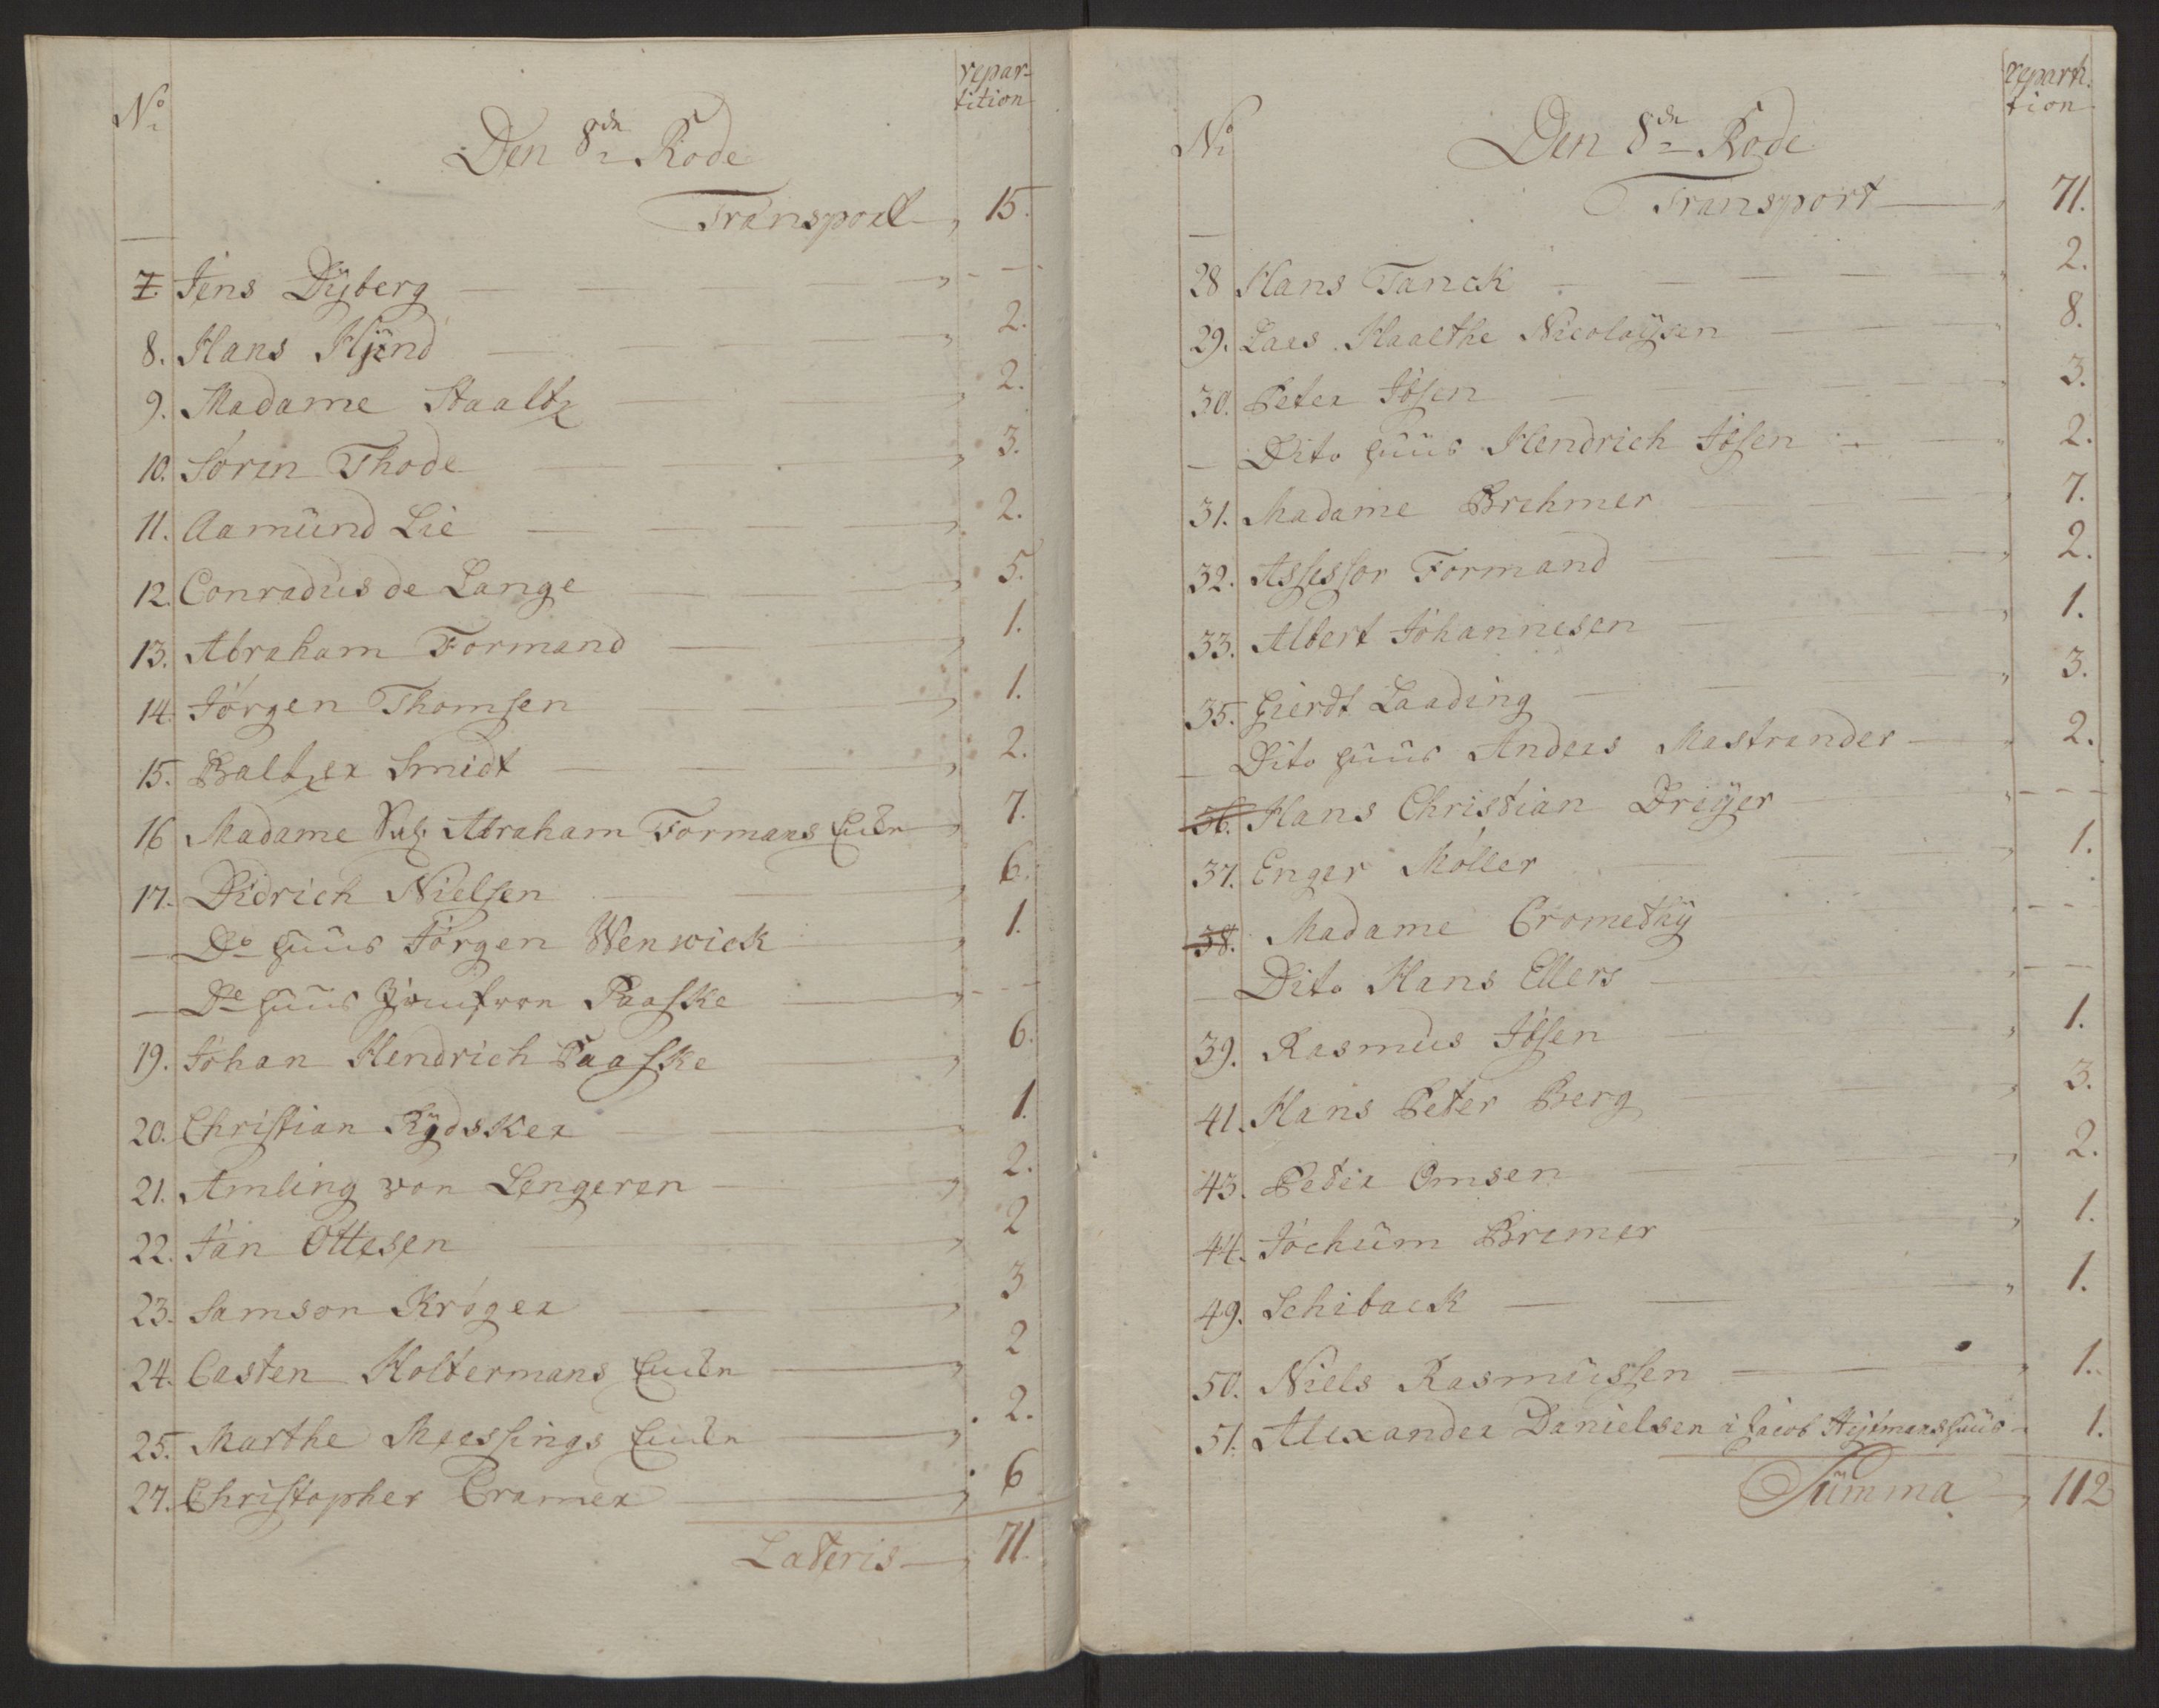 No
Den 8de Rode
repar-
tition
Transport 15.
7. Jens Dÿberg - - -
8. Hans Hÿnd 2.
9. Madame Staaltz 2.
10. Sørin Thode 3.
11. Aamund Lie 2.
12. Conradus de Lange 5.
13. Abraham Formand 1.
14. Jørgen Thomsen 1.
15. Baltzer Smidt 2.
16 Madame Sal. Abraham Formans Enke 7.
17. Didrich Nielsen 6.
— Do huus Jørgen Wenwick 1.
— Do huus Jomfrou Paaske - - -
19. Johan Hendrich Paaske 6.
20. Christian Rÿdsker 1.
21. Amling von Lengeren 2.
22. Jan Ottesen 2
23. Samson Krøger 3
24. Casten Holtermans Enke 2
25. Marthe Messings Enke 2.
27. Christopher Cramer 6
Lateris 71.
No
Den 8de Rode
reparti
tion
Transport 71.
28 Hans Tanck 2.
29. Lars Haalthe Nicolaÿsen 8.
30. Peter Ibsen 3.
— Dito huus Hendrich Ibsen 2.
31. Madame Brehmer 7.
32. Assessor Formand 2.
33. Albert Johannesen 1.
35. Gierdt Laading 3.
— Dito huus Anders Mastrander 2.
36. Hans Christian Driÿer - - -
37. Enger Møller 1.
38. Madame Cromethÿ - - -
— Dito Hans Ellers - —
39. Rasmus Ibsen 1.
41. Hans Peter Berg 3.
43. Peter Omsen 2.
44. Jochum Bremer 1.
49. Schiback 1.
50. Niels Rasmussen 1.
51. Alexander Danielsen i Jacob Heÿtmans huus 1.
Summa 112